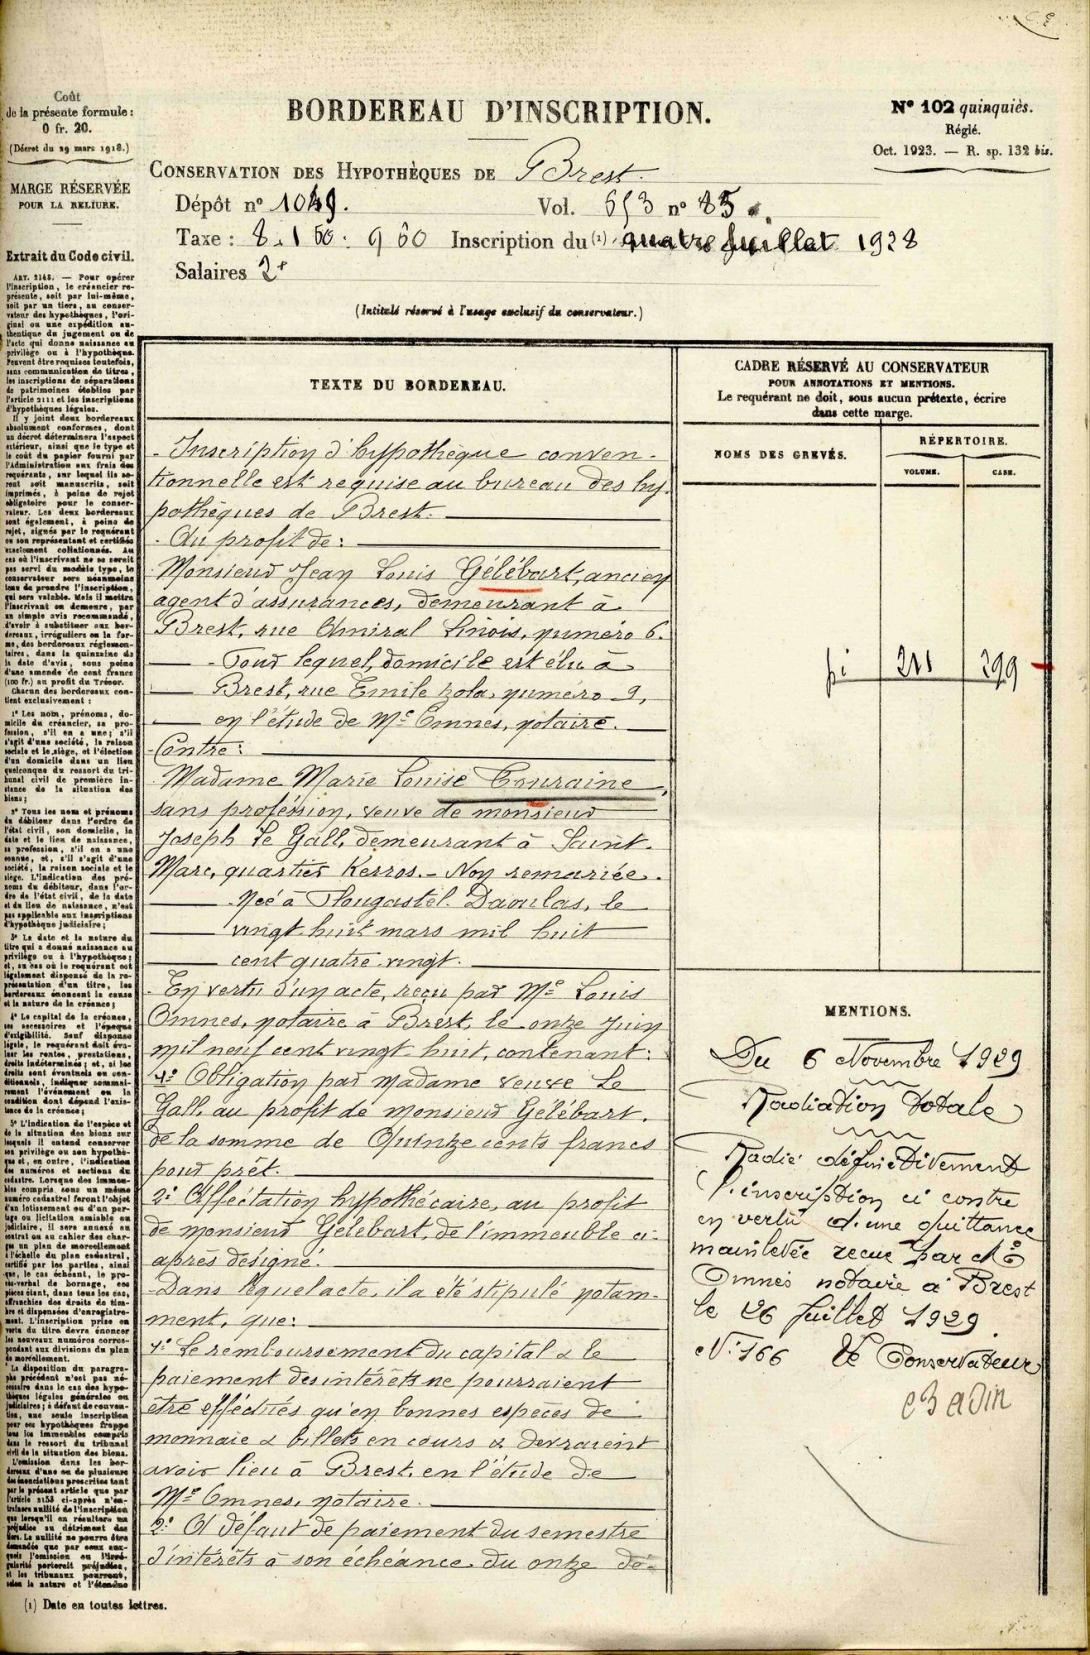 BORDEREAU D'INSCRIPTION.
N° 102 quinquiès.
Réglé.
Oct. 1923. — R. sp. 132 bis.
Coût
de la présente formule :
0 fr. 20.
(Décret du 29 mars 1918.)
MARGE RÉSERVÉE
POUR LA RELIURE.
CONSERVATION DES HYPOTHÈQUES DE Brest.
Dépôt n° 1049. Vol. 653 n° 85.
Taxe : Inscription du (1) quatre juillet 1928
Salaires
(Intitulé réservé à l'usage exclusif du conservateur.)
Extrait du Code civil.
ART. 2148. — Pour opérer
l'inscription, le créancier re-
présente, soit par lui-même,
soit par un tiers, au conser-
vateur des hypothèques, l'ori-
ginal ou une expédition au-
thentique du jugement ou de
l'acte qui donne naissance au
privilège ou à l'hypothèque.
Peuvent être requises toutefois,
sans communication de titres,
les inscriptions de séparations
de patrimoines établies par
l'article 2111 et les inscriptions
d'hypothèques légales.
Il y joint deux bordereaux
absolument conformes, dont
un décret déterminera l'aspect
extérieur, ainsi que le type et
le coût du papier fourni par
l'Administration aux frais des
requérants, sur lequel ils se-
ront soit manuscrits, soit
imprimés, à peine de rejet
obligatoire pour le conser-
vateur. Les deux bordereaux
sont également, à peine de
rejet, signés par le requérant
ou son représentant et certifiés
exactement collationnés. Au
cas où l'inscrivant ne se serait
pas servi du modèle type, le
conservateur sera néanmoins
tenu de prendre l'inscription,
qui sera valable. Mais il mettra
l'inscrivant en demeure, par
un simple avis recommandé,
d'avoir à substituer aux bor-
dereaux, irréguliers en la for-
me, des bordereaux réglemen-
taires, dans la quinzaine de
la date d'avis, sous peine
d'une amende de cent francs
(100 fr.) au profit du Trésor.
Chacun des bordereaux con-
tient exclusivement :
1° Les nom, prénoms, do-
micile du créancier, sa pro-
fession, s'il en a une; s'il
s'agit d'une société, la raison
sociale et le siège, et l'élection
d'un domicile dans un lieu
quelconque du ressort du tri-
bunal civil de première in-
stance de la situation des
biens;
2° Tous les nom et prénoms
du débiteur dans l'ordre de
l'état civil, son domicile, la
date et le lieu de naissance,
sa profession, s'il en a une
connue, et, s'il s'agit d'une
société, la raison sociale et le
siège. L'indication des pré-
noms du débiteur, dans l'or-
dre de l'état civil, de la date
et du lieu de naissance, n'est
pas applicable aux inscriptions
d'hypothèque judiciaire;
3° La date et la nature du
titre qui a donné naissance au
privilège ou à l'hypothèque;
et, au cas où le requérant est
légalement dispensé de la re-
présentation d'un titre, les
bordereaux énoncent la cause
et la nature de la créance;
4° Le capital de la créance,
ses accessoires et l'époque
d'exigibilité. Sauf disposition
légale, le requérant doit éva-
luer les rentes, prestations,
droits indéterminés; et, si les
droits sont éventuels ou con-
ditionnels, indiquer sommai-
rement l'événement ou la
condition dont dépend l'exis-
tence de la créance;
5° L'indication de l'espèce et
de la situation des biens sur
lesquels il entend conserver
son privilège ou son hypothè-
que et, en outre, l'indication
des numéros et sections du
cadastre. Lorsque des immeu-
bles compris sous un même
numéro cadastral feront l'objet
d'un lotissement ou d'un par-
tage ou licitation amiable ou
judiciaire, il sera annexé au
contrat ou au cahier des char-
ges un plan de morcellement
à l'échelle du plan cadastral,
certifié par les parties, ainsi
que, le cas échéant, le pro-
cès-verbal de bornage, ces
pièces étant, dans tous les cas,
affranchies des droits de tim-
bre et dispensées d'enregistre-
ment. L'inscription prise en
vertu du titre devra énoncer
les nouveaux numéros corres-
pondant aux divisions du plan
de morcellement.
La disposition du paragra-
phe précédent n'est pas né-
cessaire dans le cas des hypo-
thèques légales générales ou
judiciaires; à défaut de conven-
tion, une seule inscription
pour ces hypothèques frappe
tous les immeubles compris
dans le ressort du tribunal
civil de la situation des biens.
L'omission dans les bor-
dereaux d'une ou de plusieurs
des énonciations prescrites tant
par le présent article que par
l'article 2153 ci-après n'en-
traînera nullité de l'inscription
que lorsqu'il en résultera un
préjudice au détriment des
tiers. La nullité ne pourra être
demandée que par ceux aux-
quels l'omission ou l'irré-
gularité porterait préjudice,
et les tribunaux pourront,
selon la nature et l'étendue
TEXTE DU BORDEREAU.
- Inscription d'hypothèque conven-
tionnelle est requise au bureau des hy-
pothèques de Brest.
- Au profit de :
Monsieur Jean Louis Gélébart, ancien
agent d'assurances, demeurant à
Brest, rue Amiral Linois, numéro 6.
- Pour lequel, domicile est élu à
Brest, rue Emile Zola, numéro 9,
en l'étude de Me Omnes, notaire.
Contre :
Madame Marie Louise Touraine,
sans profession, veuve de monsieur
Joseph Le Gall, demeurant à Saint-
Marc, quartier Kerros. - Non remariée.
Née à Plougastel-Daoulas, le
vingt-huit mars mil huit
cent quatre-vingt.
- En vertu d'un acte, reçu par Me Louis
Omnes, notaire à Brest, le onze juin
mil neuf cent vingt-huit, contenant :
1° Obligation par madame veuve Le
Gall, au profit de monsieur Gélébart,
de la somme de Quinze cents francs
pour prêt.
2° Affectation hypothécaire, au profit
de monsieur Gélébart, de l'immeuble ci-
après désigné.
- Dans lequel acte, il a été stipulé notam-
ment, que :
1° Le remboursement du capital & le
paiement des intérêts ne pourraient
être effectués qu'en bonnes espèces de
monnaie & billets en cours & devraient
avoir lieu à Brest, en l'étude de
Me Omnes, notaire.
2° A défaut de paiement du semestre
d'intérêts à son échéance du onze dé-
CADRE RÉSERVÉ AU CONSERVATEUR
POUR ANNOTATIONS ET MENTIONS.
Le requérant ne doit, sous aucun prétexte, écrire
dans cette marge.
NOMS DES GREVÉS.
RÉPERTOIRE.
VOLUME. CASE.
211 299
MENTIONS.
Du 6 Novembre 1929
Radiation totale
Radié définitivement
l'inscription ci contre
en vertu d'une quittance
mainlevée reçue par Me
Omnes notaire à Brest
le 26 Juillet 1929.
N° 166 Le Conservateur
(1) Date en toutes lettres.